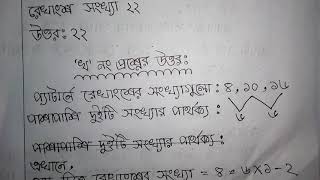 রেখাংশে সংখ্যা ২২
উত্তর: ২২
'খ' নং প্রশ্নের উত্তর:
প্যাটার্নে রেখাংশের সংখ্যাগুলো: ৪, ১০, ১৬
পাশাপাশি দুইটি সংখ্যার পার্থক্য:
পাশাপাশি দুইটি সংখ্যার পার্থক্য:
এখানে,
রেখাংশের সংখ্যা = ৪ = ৬×১-২